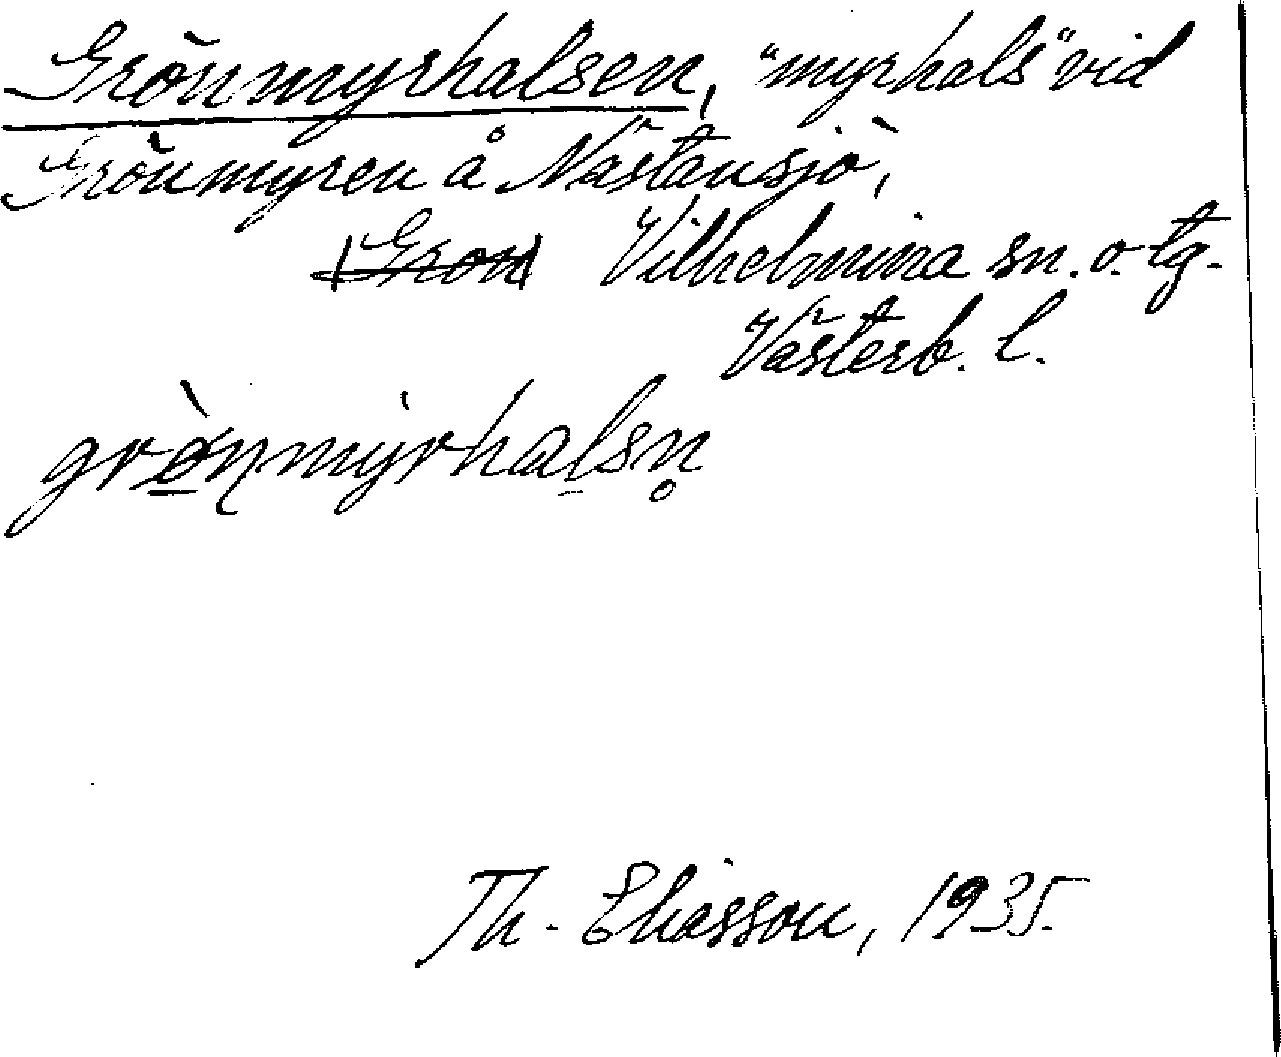 Grönmyrhalsen, "myrhals" vid
Grönmyren å Nästansjö,
Gron Vilhelmina sn. o. tg.
Västerb. l.
grö̀nmyrhalsn̥
Th. Eliasson, 1935.